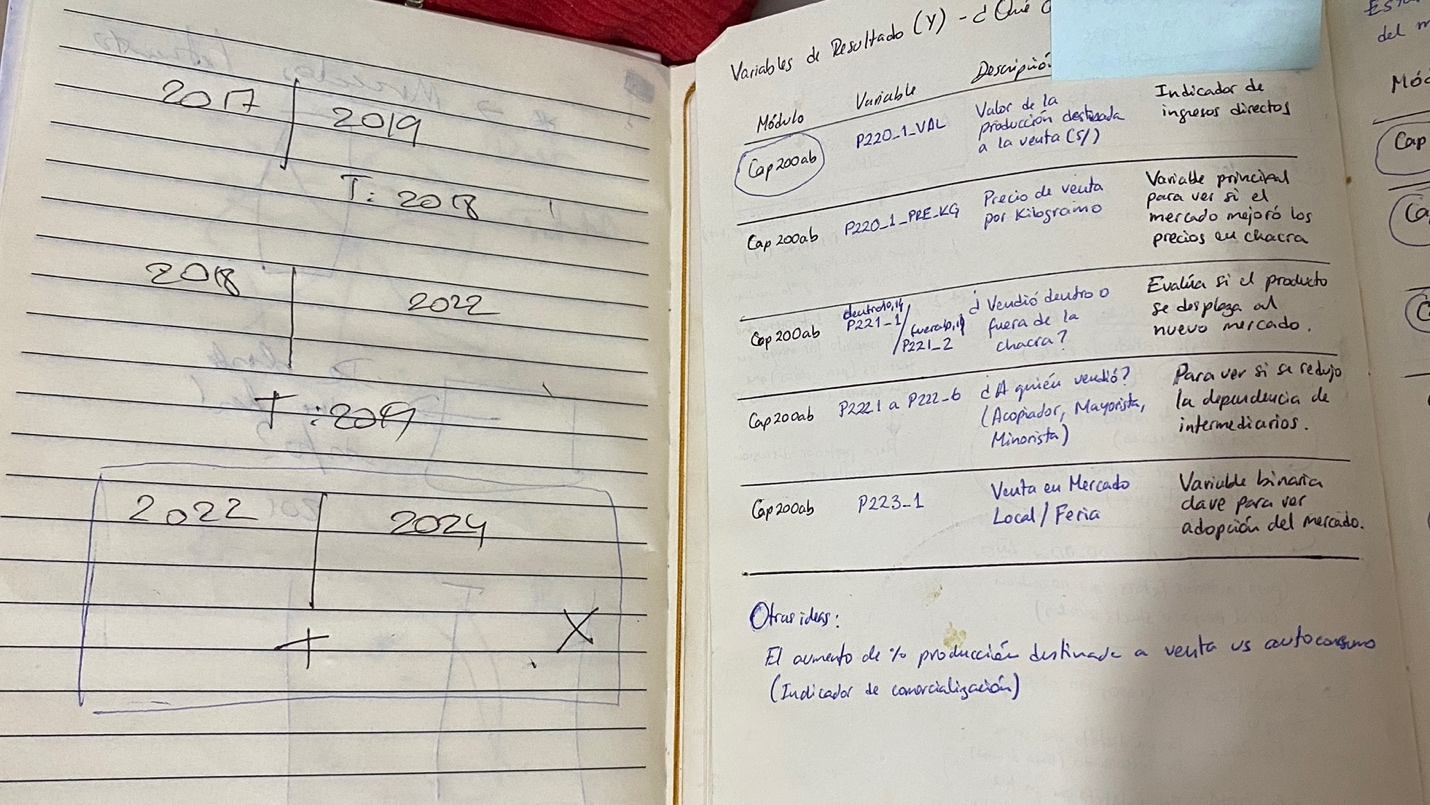 2017 | 2019
T: 2018
2018 | 2022
T: 2019
2022 | 2024
T
X
Variables de Resultado (Y) - ¿Qué
Módulo Variable Descripción
Cap200ab P220_1_VAL Valor de la producción destinada a la venta (S/) Indicador de ingresos directos
Cap200ab P220_1_PRE_KG Precio de venta por Kilogramo Variable principal para ver si el mercado mejoró los precios en chacra
Cap200ab P221_1 / P221_2 ¿Vendió dentro o fuera de la chacra? Evalúa si el producto se desplaza al nuevo mercado.
Cap200ab P222_1 a P222_6 ¿A quién vendió? (Acopiador, Mayorista, Minorista) Para ver si se redujo la dependencia de intermediarios.
Cap200ab P223_1 Venta en Mercado Local/Feria Variable binaria clave para ver adopción del mercado.
Otras ideas:
El aumento de % producción destinada a venta vs autoconsumo
(Indicador de comercialización)
del
Cap